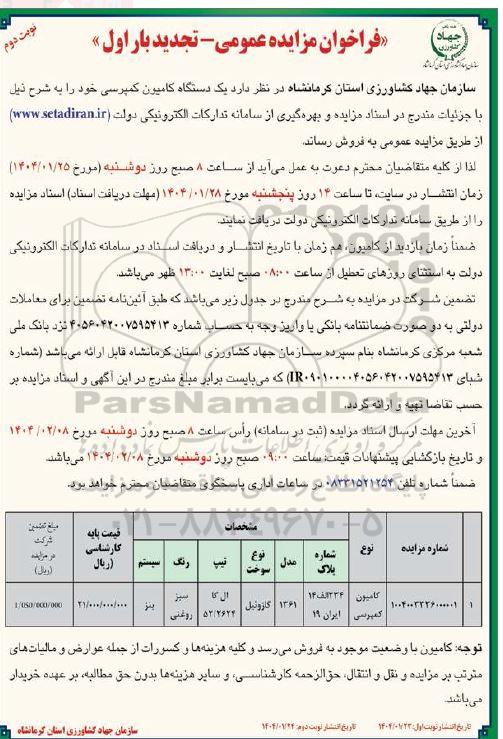 نوبت دوم
«فراخوان مزایده عمومی- تجدید بار اول»
جهاد کشاورزی
سازمان جهاد کشاورزی استان کرمانشاه
سازمان جهاد کشاورزی استان کرمانشاه در نظر دارد یک دستگاه کامیون کمپرسی خود را به شرح ذیل
با جزئیات مندرج در اسناد مزایده و بهره‌گیری از سامانه تدارکات الکترونیکی دولت (www.setadiran.ir)
از طریق مزایده عمومی به فروش رساند.
لذا از کلیه متقاضیان محترم دعوت به عمل می‌آید از ساعت ۸ صبح روز دوشنبه (مورخ ۱۴۰۴/۰۱/۲۵)
زمان انتشار در سایت، تا ساعت ۱۴ روز پنجشنبه مورخ ۱۴۰۴/۰۱/۲۸ (مهلت دریافت اسناد) اسناد مزایده
را از طریق سامانه تدارکات الکترونیکی دولت دریافت نمایند.
ضمناً زمان بازدید از کامیون، هم زمان با تاریخ انتشار و دریافت اسناد در سامانه تدارکات الکترونیکی
دولت به استثنای روزهای تعطیل از ساعت ۰۸:۰۰ صبح لغایت ۱۳:۰۰ ظهر می‌باشد.
تضمین شرکت در مزایده به شرح مندرج در جدول زیر می‌باشد که طبق آئین‌نامه تضمین برای معاملات
دولتی به دو صورت ضمانتنامه بانکی یا واریز وجه به حساب شماره ۴۰۵۶۰۴۲۰۰۷۵۹۵۴۱۳ نزد بانک ملی
شعبه مرکزی کرمانشاه بنام سپرده سازمان جهاد کشاورزی استان کرمانشاه قابل ارائه می‌باشد (شماره
شبای IR۰۹۰۱۰۰۰۰۴۰۵۶۰۴۲۰۰۷۵۹۵۴۱۳) که می‌بایست برابر مبلغ مندرج در این آگهی و اسناد مزایده بر
حسب تقاضا تهیه و ارائه گردد.
آخرین مهلت ارسال اسناد مزایده (ثبت در سامانه) رأس ساعت ۸ صبح روز دوشنبه مورخ ۱۴۰۴/۰۲/۰۸
و تاریخ بازگشایی پیشنهادات قیمت: ساعت ۰۹:۰۰ صبح روز دوشنبه مورخ ۱۴۰۴/۰۲/۰۸ می‌باشد.
ضمناً شماره تلفن ۰۸۳۳۱۵۲۱۲۵۴ در ساعات اداری پاسخگوی متقاضیان محترم خواهد بود.
ParsNamadData
۰۲۱-۸۸۳۴۹۶۷۰-۵
شماره مزایده | نوع | مشخصات | قیمت پایه کارشناسی (ریال) | مبلغ تضمین شرکت در مزایده (ریال)
شماره پلاک | مدل | نوع سوخت | تیپ | رنگ | سیستم
۱ | ۱۰۰۴۰۰۳۳۲۶۰۰۰۰۰۱ | کامیون کمپرسی | ۲۳۴الف۱۴ ایران ۱۹ | ۱۳۶۱ | گازوئیل | ال کا ۵۲/۲۶۲۴ | سبز روغنی | بنز | ۲۱/۰۰۰/۰۰۰/۰۰۰ | 1/050/000/000
توجه: کامیون با وضعیت موجود به فروش می‌رسد و کلیه هزینه‌ها و کسورات از جمله عوارض و مالیات‌های
مترتب بر مزایده و نقل و انتقال، حق‌الزحمه کارشناسی، و سایر هزینه‌ها بدون حق مطالبه، بر عهده خریدار
می‌باشد.
تاریخ انتشار نوبت اول: ۱۴۰۴/۰۱/۲۳ تاریخ انتشار نوبت دوم: ۱۴۰۴/۰۱/۲۴
سازمان جهاد کشاورزی استان کرمانشاه